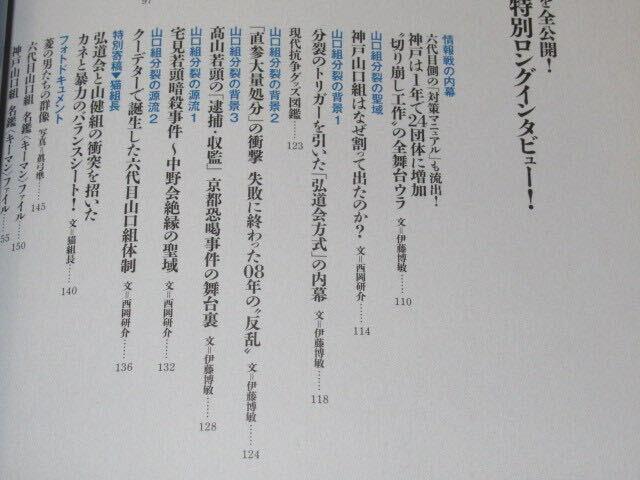 を全公開！
特別ロングインタビュー！
97
情報戦の内幕
六代目側の「対策マニュアル」も流出！
神戸は1年で24団体に増加
“切り崩し工作”の全舞台ウラ 文＝伊藤博敏……110
山口組分裂の聖域
神戸山口組はなぜ割って出たのか？ 文＝西岡研介……114
山口組分裂の背景1
分裂のトリガーを引いた「弘道会方式」の内幕 文＝伊藤博敏……118
現代抗争グッズ図鑑……123
山口組分裂の背景2
「直参大量処分」の衝撃 失敗に終わった08年の“反乱” 文＝伊藤博敏……124
山口組分裂の背景3
髙山若頭の「逮捕・収監」 京都恐喝事件の舞台裏 文＝伊藤博敏……128
山口組分裂の源流1
宅見若頭暗殺事件 〜中野会絶縁の聖域 文＝西岡研介……132
山口組分裂の源流2
クーデターで誕生した六代目山口組体制 文＝西岡研介……136
特別寄稿▼猫組長
弘道会と山健組の衝突を招いた
カネと暴力のバランスシート！ 文＝猫組長……140
フォトドキュメント
菱の男たちの群像 写真＝眞弓準……145
六代目山口組 名鑑《キーマン》ファイル……150
神戸山口組 名鑑《キーマン》ファイル……155